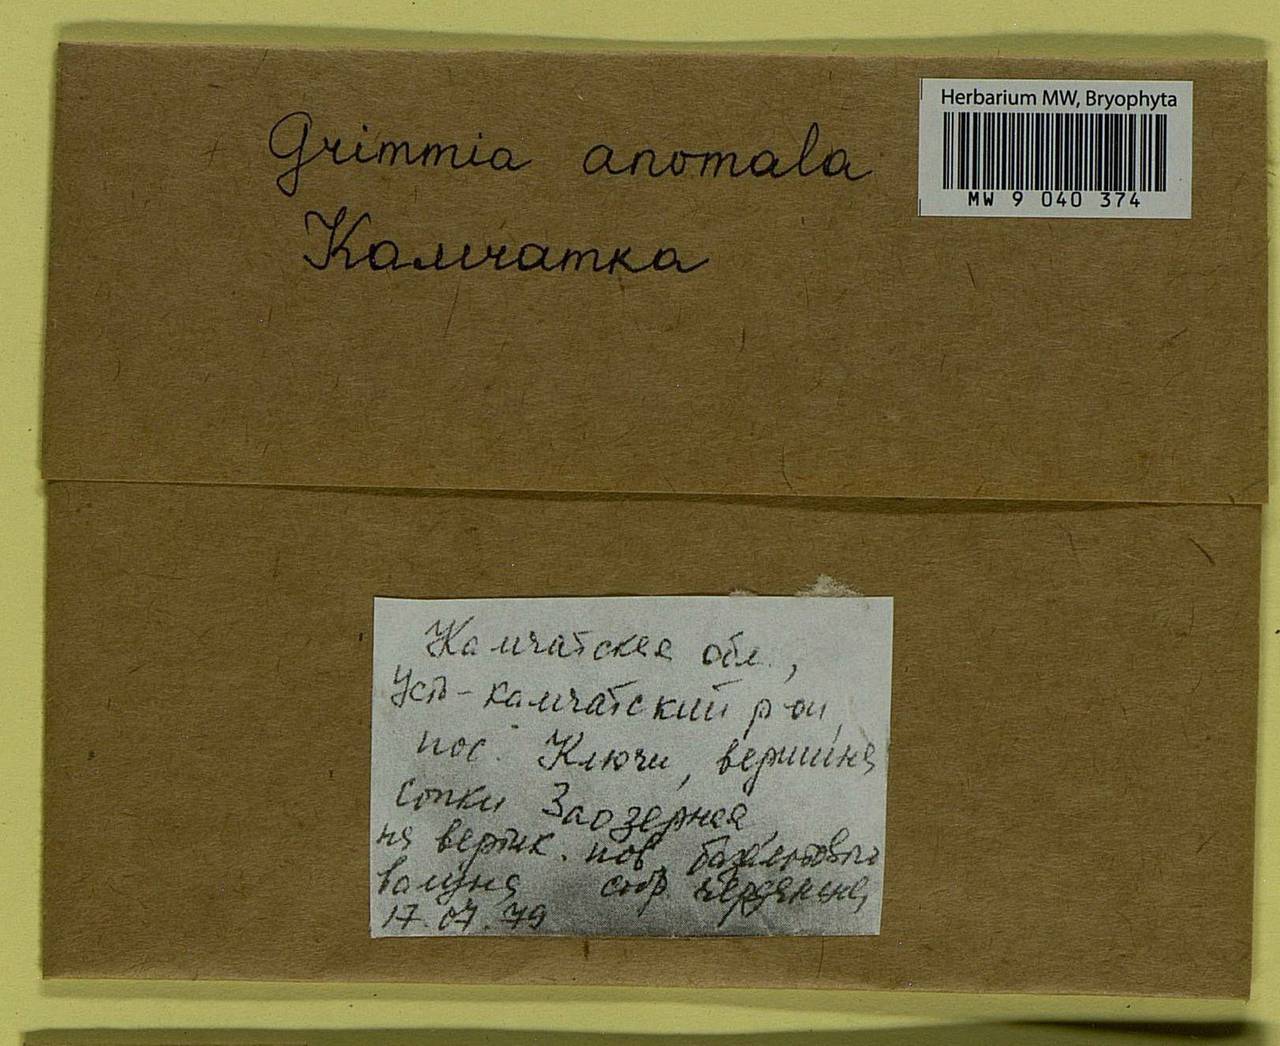 Herbarium MW, Bryophyta
MW 9 040 374
Grimmia anomala
Камчатка
Камчатская обл.,
Усть-камчатский р-он,
пос. Ключи, вершина
сопки Заозерная,
на вертик. пов. базальтового
валуна собр. Черданцева
17.07.79